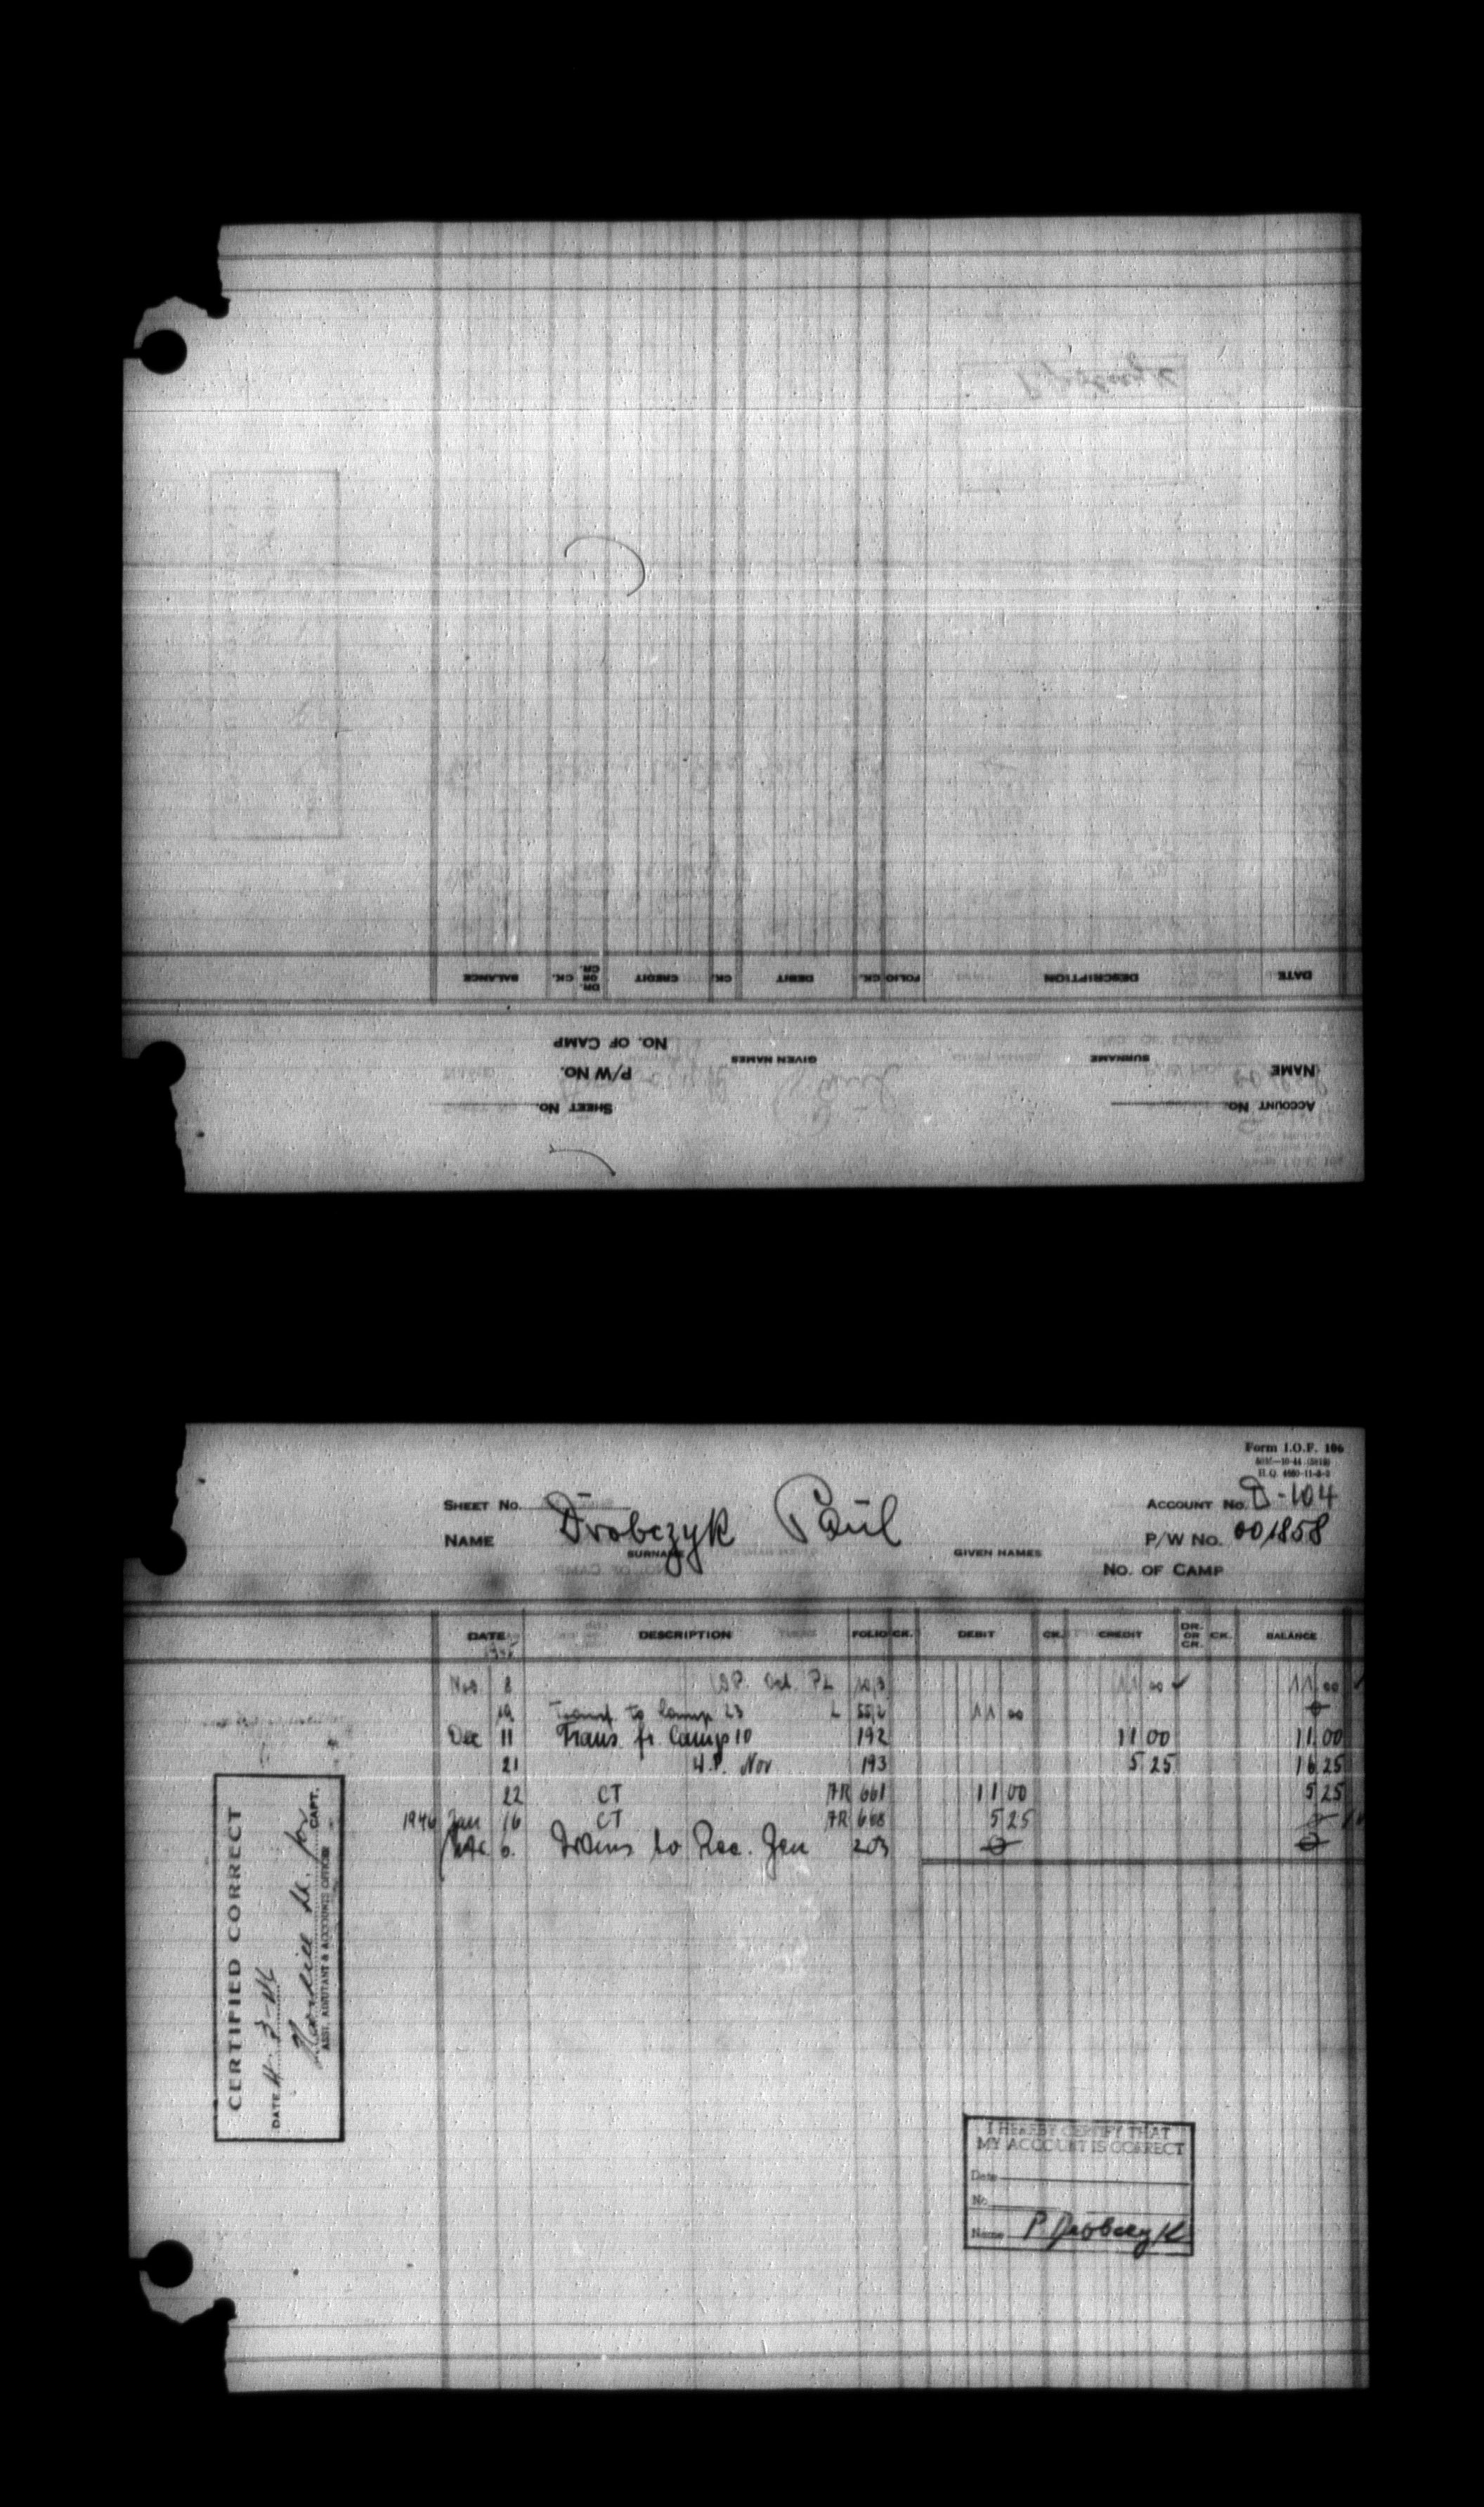 BALANCE CK. DR. OR CR. CREDIT CK. DEBIT CK. FOLIO DESCRIPTION DATE
NO. OF CAMP
GIVEN NAMES SURNAME
P/W NO. NAME
SHEET NO. ACCOUNT NO.
Form I.O.F. 106
H.Q. 4660-11-8-2
SHEET NO. ACCOUNT NO. D-104
NAME Drobczyk Paul P/W NO. 001858
SURNAME GIVEN NAMES
NO. OF CAMP
DATE DESCRIPTION FOLIO CK. DEBIT CK. CREDIT DR. OR CR. CK. BALANCE
1945
Nov 8 Oct. PL 11 00 ✓ 11 00 ✓
19 Transf. to Camp 23 L 11 00
Dec 11 Trans. fr. Camp 10 192 11 00 11 00
21 W.P. Nov 193 5 25 16 25
22 CT AR 661 11 00 5 25
1946 Jan 16 CT AR 668 5 25
6. Trans to Rec. Gen 203
CERTIFIED CORRECT
DATE
CAPT.
ASST. ADJUTANT & ACCOUNTS OFFICER
I HEREBY CERTIFY THAT
MY ACCOUNT IS CORRECT
Date
No.
Name P. Drobczyk